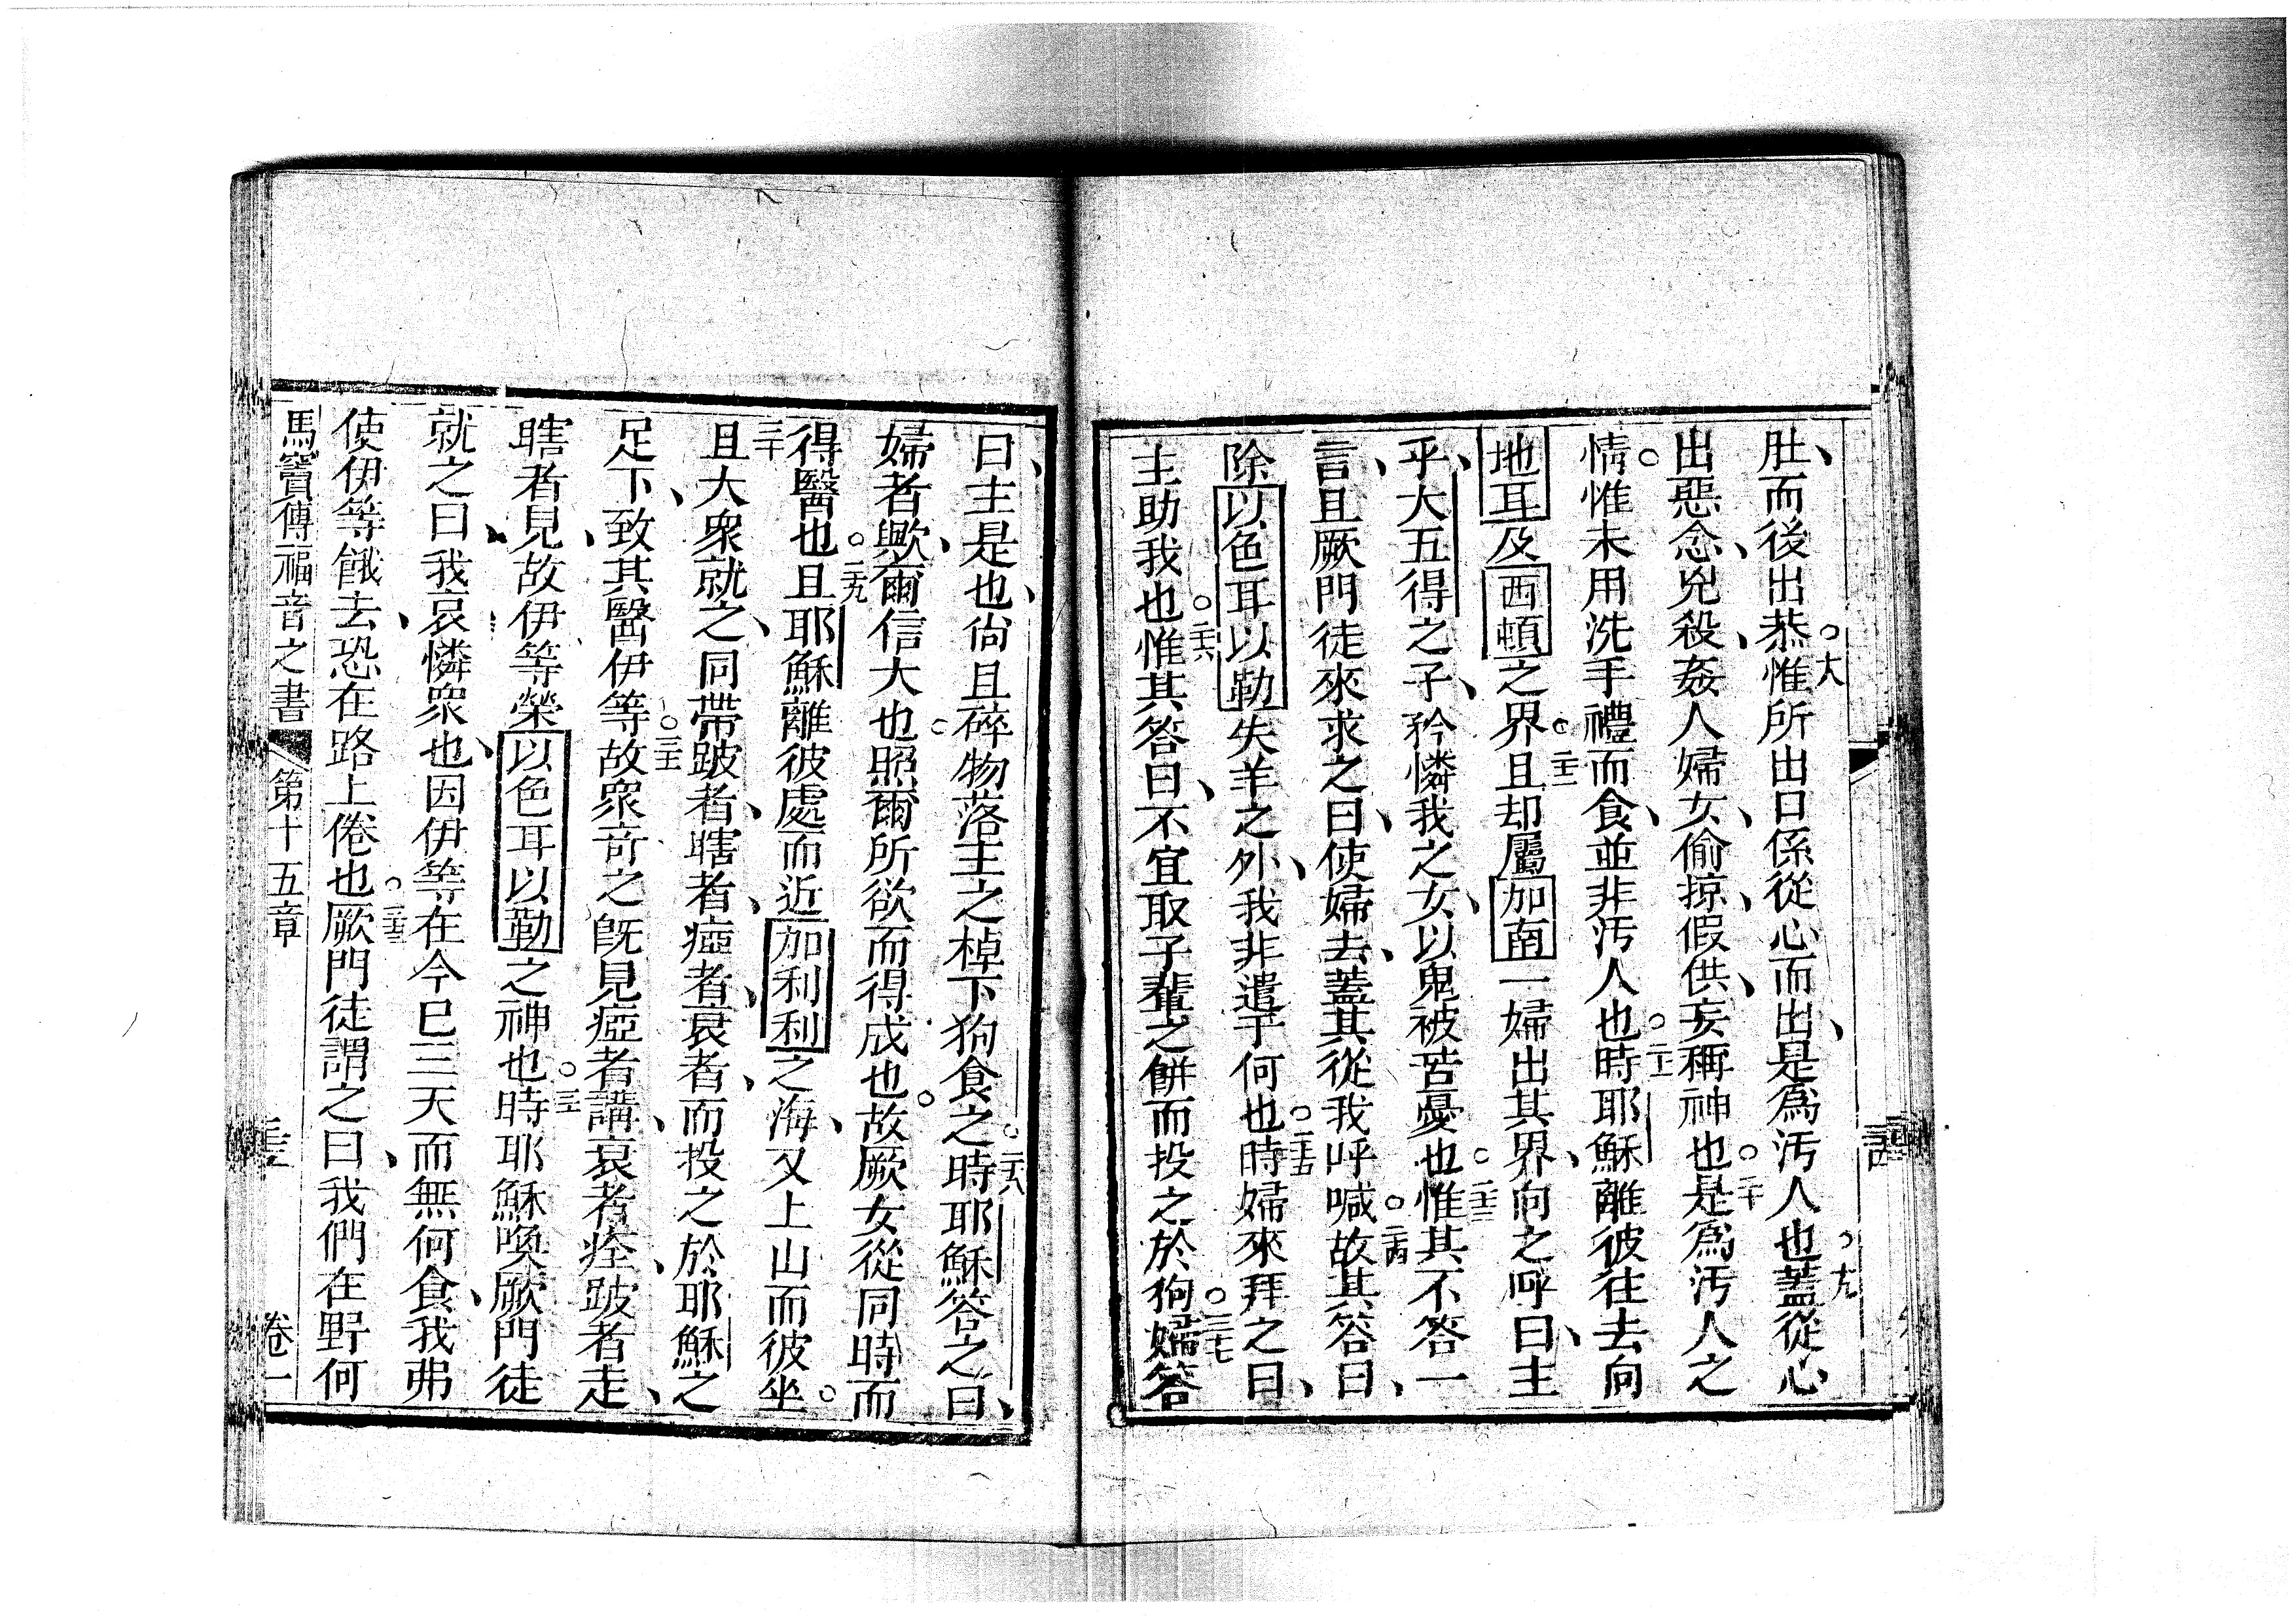 肚、而後出恭。十八惟所出口係從心而出、是為汚人也。十九蓋從心
出惡念、兇殺、姦人婦女、偷掠、假供、妄稱神也。二十是為汚人之
情。惟未用洗手禮而食、並非汚人也。二十一時耶穌離彼往去向
地耳及西頓之界。二十二且却屬加南一婦出其界、向之呼曰、主
乎、大五得之子、矜憐我之女、以鬼被苦憂也。二十三惟其不答一
言、且厥門徒來求之曰、使婦去、蓋其從我呼喊。二十四故其答曰、
除以色耳以勒失羊之外、我非遣于何也。二十五時婦來拜之曰、
主助我也。二十六惟其答曰、不宜取子輩之餅而投之於狗。二十七婦答
曰、主是也、尙且碎物落主之棹下狗食之。二十八時耶穌答之曰、
婦者歟、爾信大也。照爾所欲而得成也。故厥女從同時而
得醫也。二十九且耶穌離彼處而近加利利之海、又上山而彼坐。
三十且大衆就之、同帶跛者、瞎者、瘂者、𡱈者、而投之於耶穌之
足下、致其醫伊等。三十一故衆奇之、旣見瘂者講、𡱈者痊、跛者走、
瞎者見、故伊等榮以色耳以勒之神也。三十二時耶穌喚厥門徒
就之曰、我哀憐衆也、因伊等在今已三天而無何食、我弗
使伊等餓去、恐在路上倦也。三十三厥門徒謂之曰、我們在野何
馬竇傳福音之書 第十五章 卷一